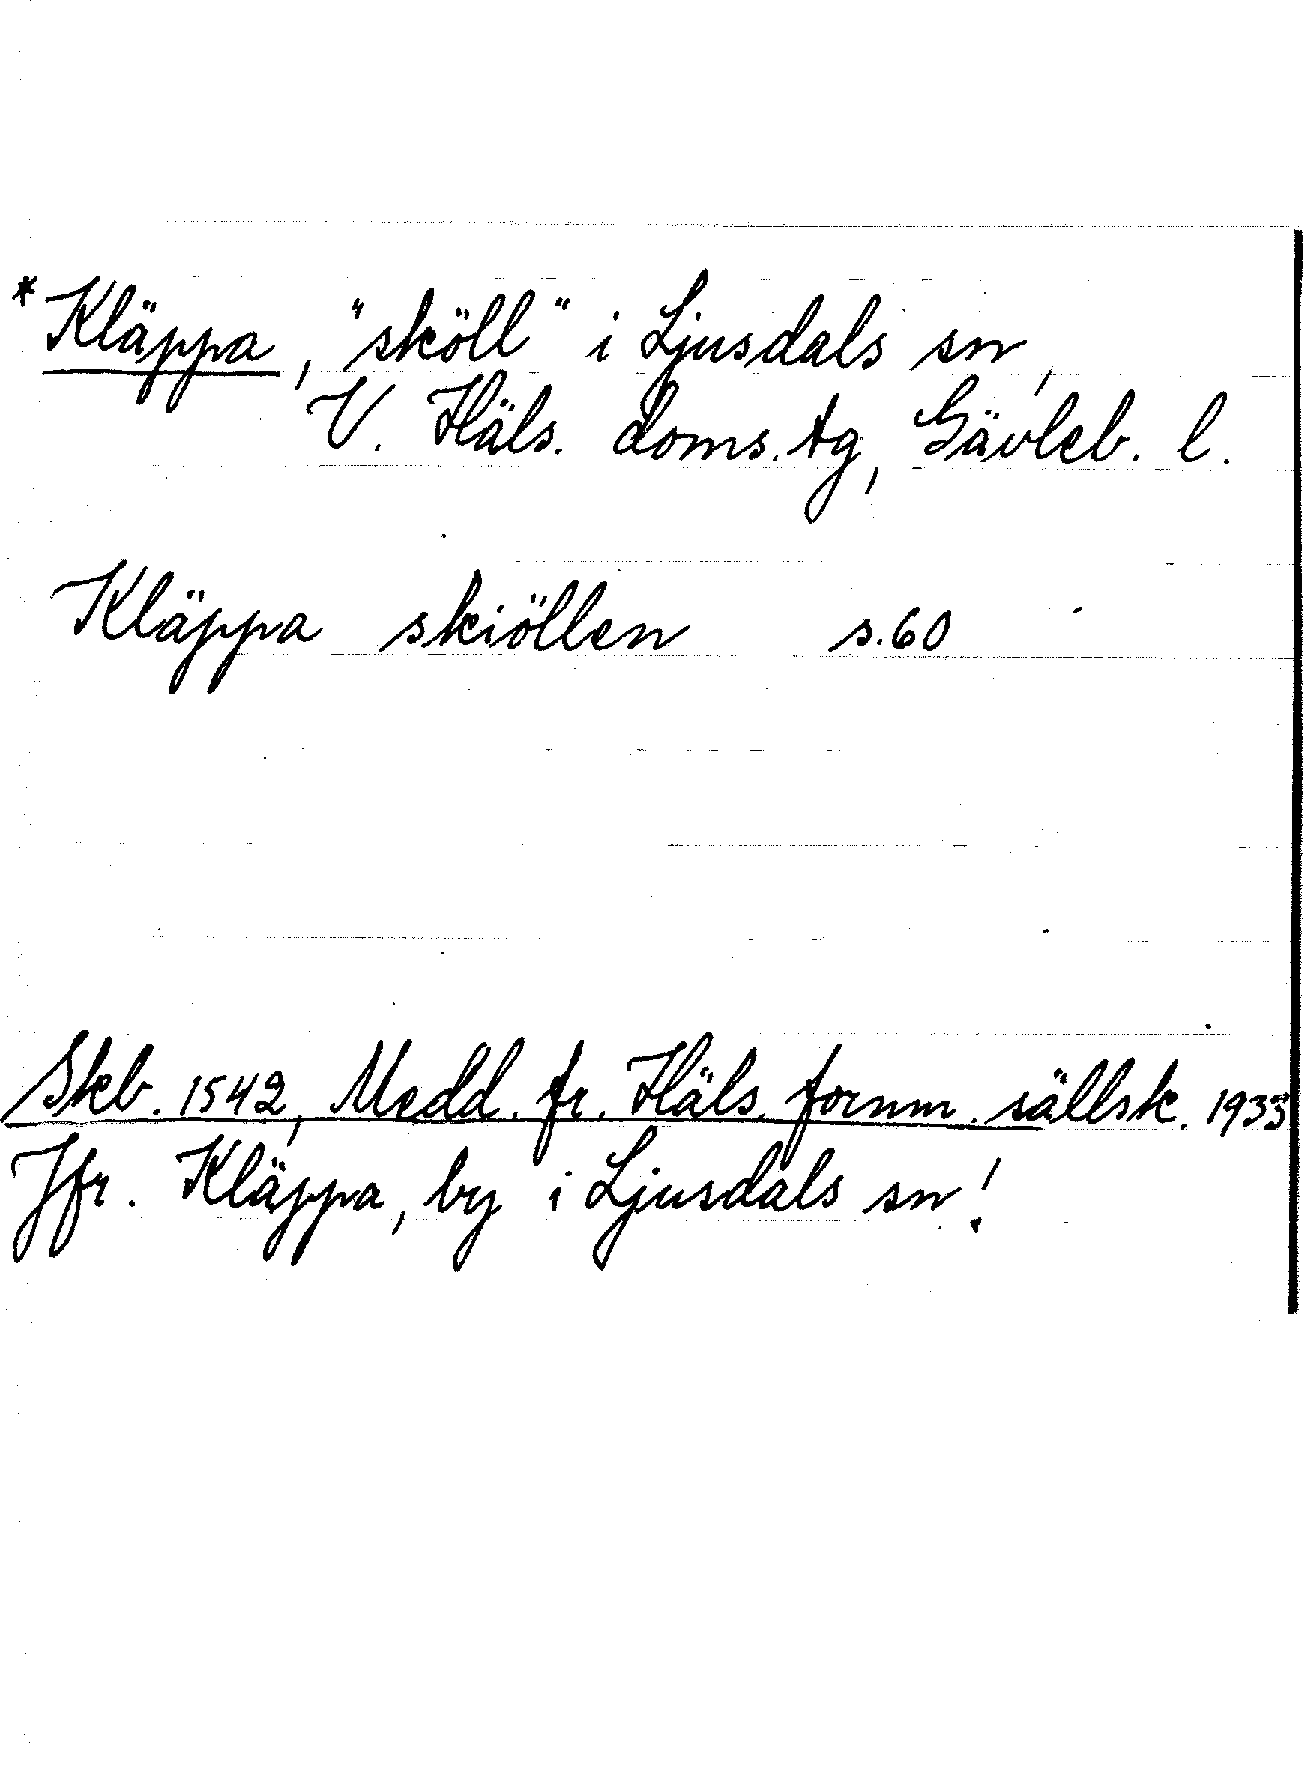 *Kläppa, "sköll" i Ljusdals sn,
V. Häls. doms.tg, Gävleb. l.
Kläppa skiöllen s.60
Skb. 1542, Medd. fr. Häls. fornm. sällsk. 1933
Jfr. Kläppa, by i Ljusdals sn!